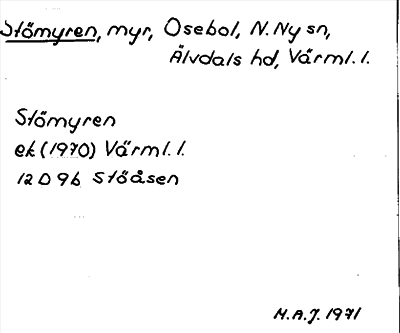 Stömyren, myr, Osebol, N. Ny sn,
Älvdals hd, Värml. l.
Stömyren
ek (1970) Värml. l.
12 D 9b Stöåsen
M.A.J. 1971